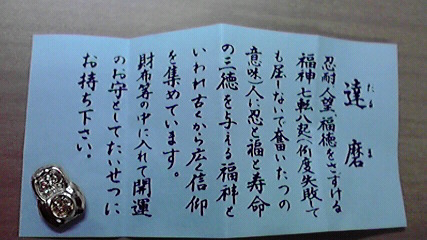 達磨
だるま
忍耐、人望、福徳をさずける
福神 七転八起(何度失敗して
も屈しないで奮いたつの
意味)人に忍と福と寿命
の三徳を与える福神と
いわれ古くから広く信仰
を集めています。
財布等の中に入れて開運
のお守としてたいせつに
お持ち下さい。